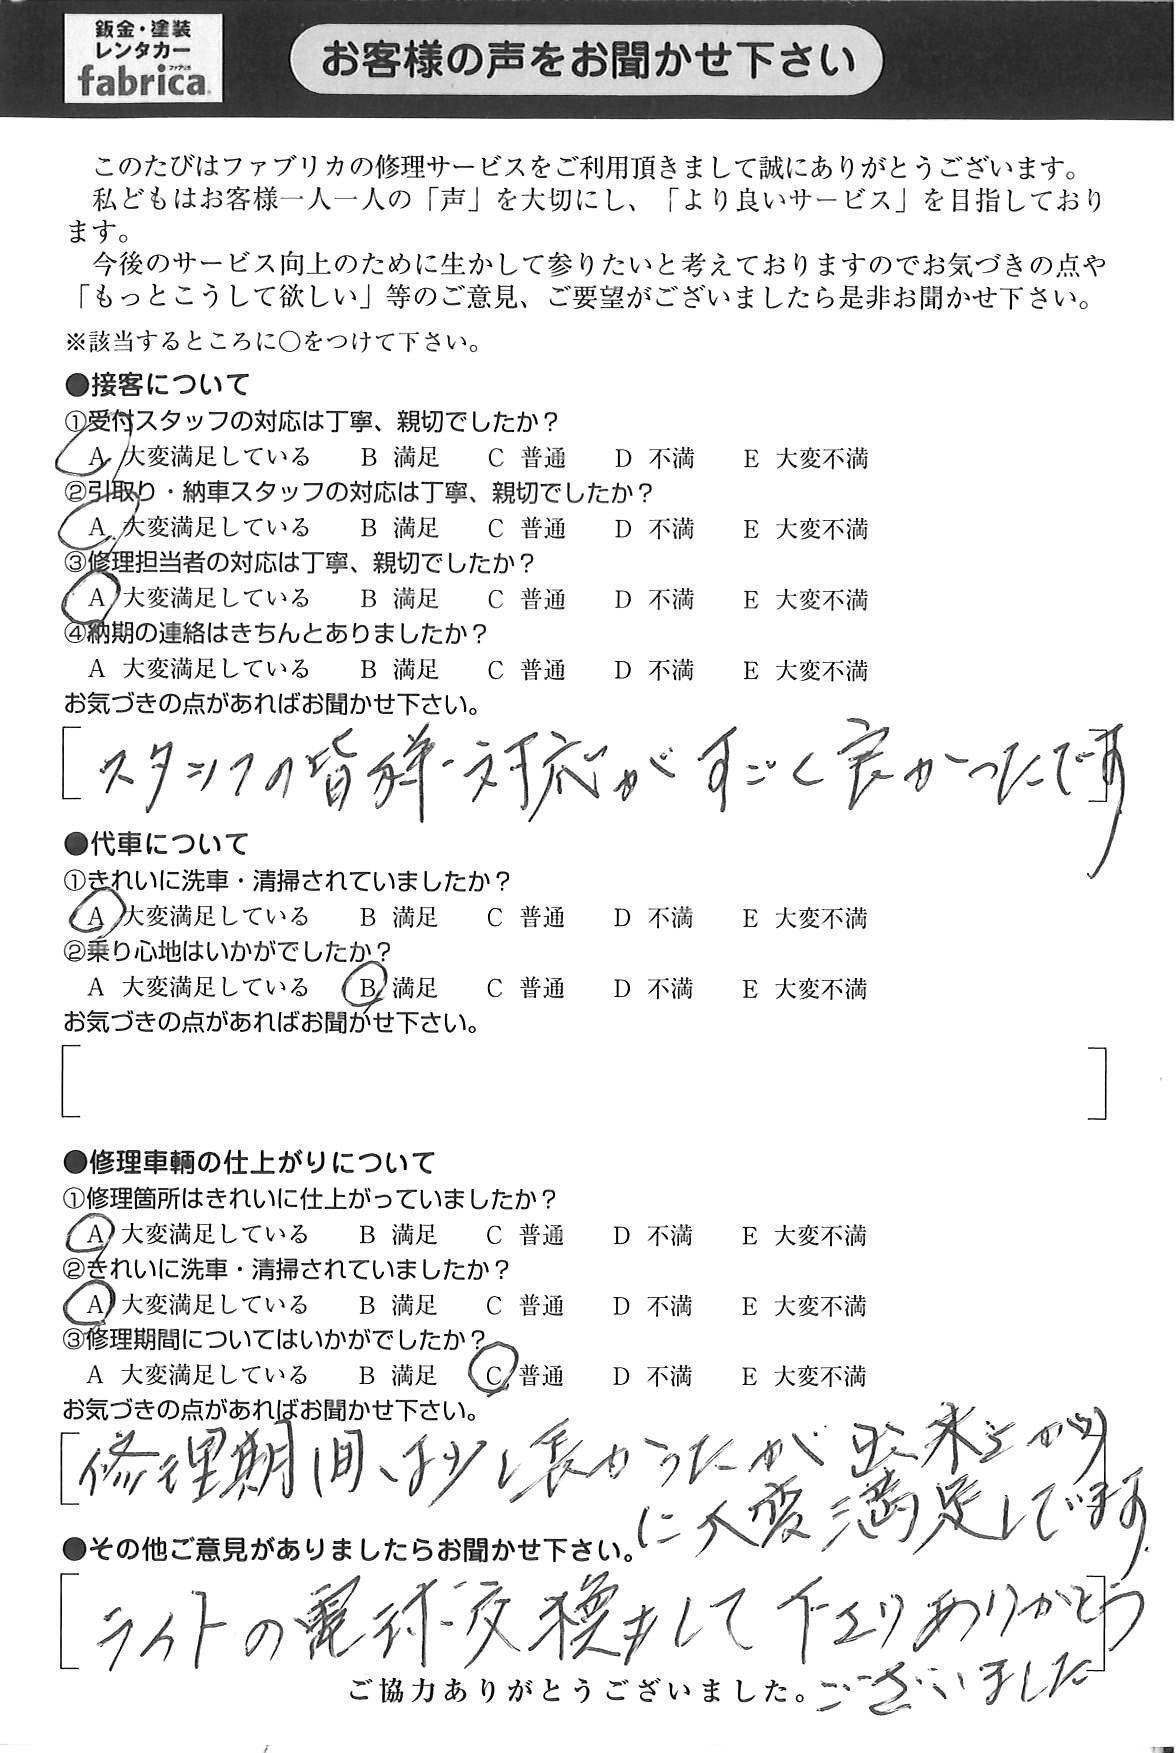 鈑金・塗装
レンタカー
ファブリカ
fabrica
お客様の声をお聞かせ下さい
このたびはファブリカの修理サービスをご利用頂きまして誠にありがとうございます。
私どもはお客様一人一人の「声」を大切にし、「より良いサービス」を目指しており
ます。
今後のサービス向上のために生かして参りたいと考えておりますのでお気づきの点や
「もっとこうして欲しい」等のご意見、ご要望がございましたら是非お聞かせ下さい。
※該当するところに○をつけて下さい。
●接客について
①受付スタッフの対応は丁寧、親切でしたか？
A 大変満足している B 満足 C 普通 D 不満 E 大変不満
②引取り・納車スタッフの対応は丁寧、親切でしたか？
A 大変満足している B 満足 C 普通 D 不満 E 大変不満
③修理担当者の対応は丁寧、親切でしたか？
A 大変満足している B 満足 C 普通 D 不満 E 大変不満
④納期の連絡はきちんとありましたか？
A 大変満足している B 満足 C 普通 D 不満 E 大変不満
お気づきの点があればお聞かせ下さい。
スタッフの皆様対応がすごく良かったです
●代車について
①きれいに洗車・清掃されていましたか？
A 大変満足している B 満足 C 普通 D 不満 E 大変不満
②乗り心地はいかがでしたか？
A 大変満足している B 満足 C 普通 D 不満 E 大変不満
お気づきの点があればお聞かせ下さい。
●修理車輌の仕上がりについて
①修理箇所はきれいに仕上がっていましたか？
A 大変満足している B 満足 C 普通 D 不満 E 大変不満
②きれいに洗車・清掃されていましたか？
A 大変満足している B 満足 C 普通 D 不満 E 大変不満
③修理期間についてはいかがでしたか？
A 大変満足している B 満足 C 普通 D 不満 E 大変不満
お気づきの点があればお聞かせ下さい。
修理期間は少し長かったが出来上がり
に大変満足してます。
●その他ご意見がありましたらお聞かせ下さい。
ライトの電球交換もして下さりありがとう
ございました
ご協力ありがとうございました。